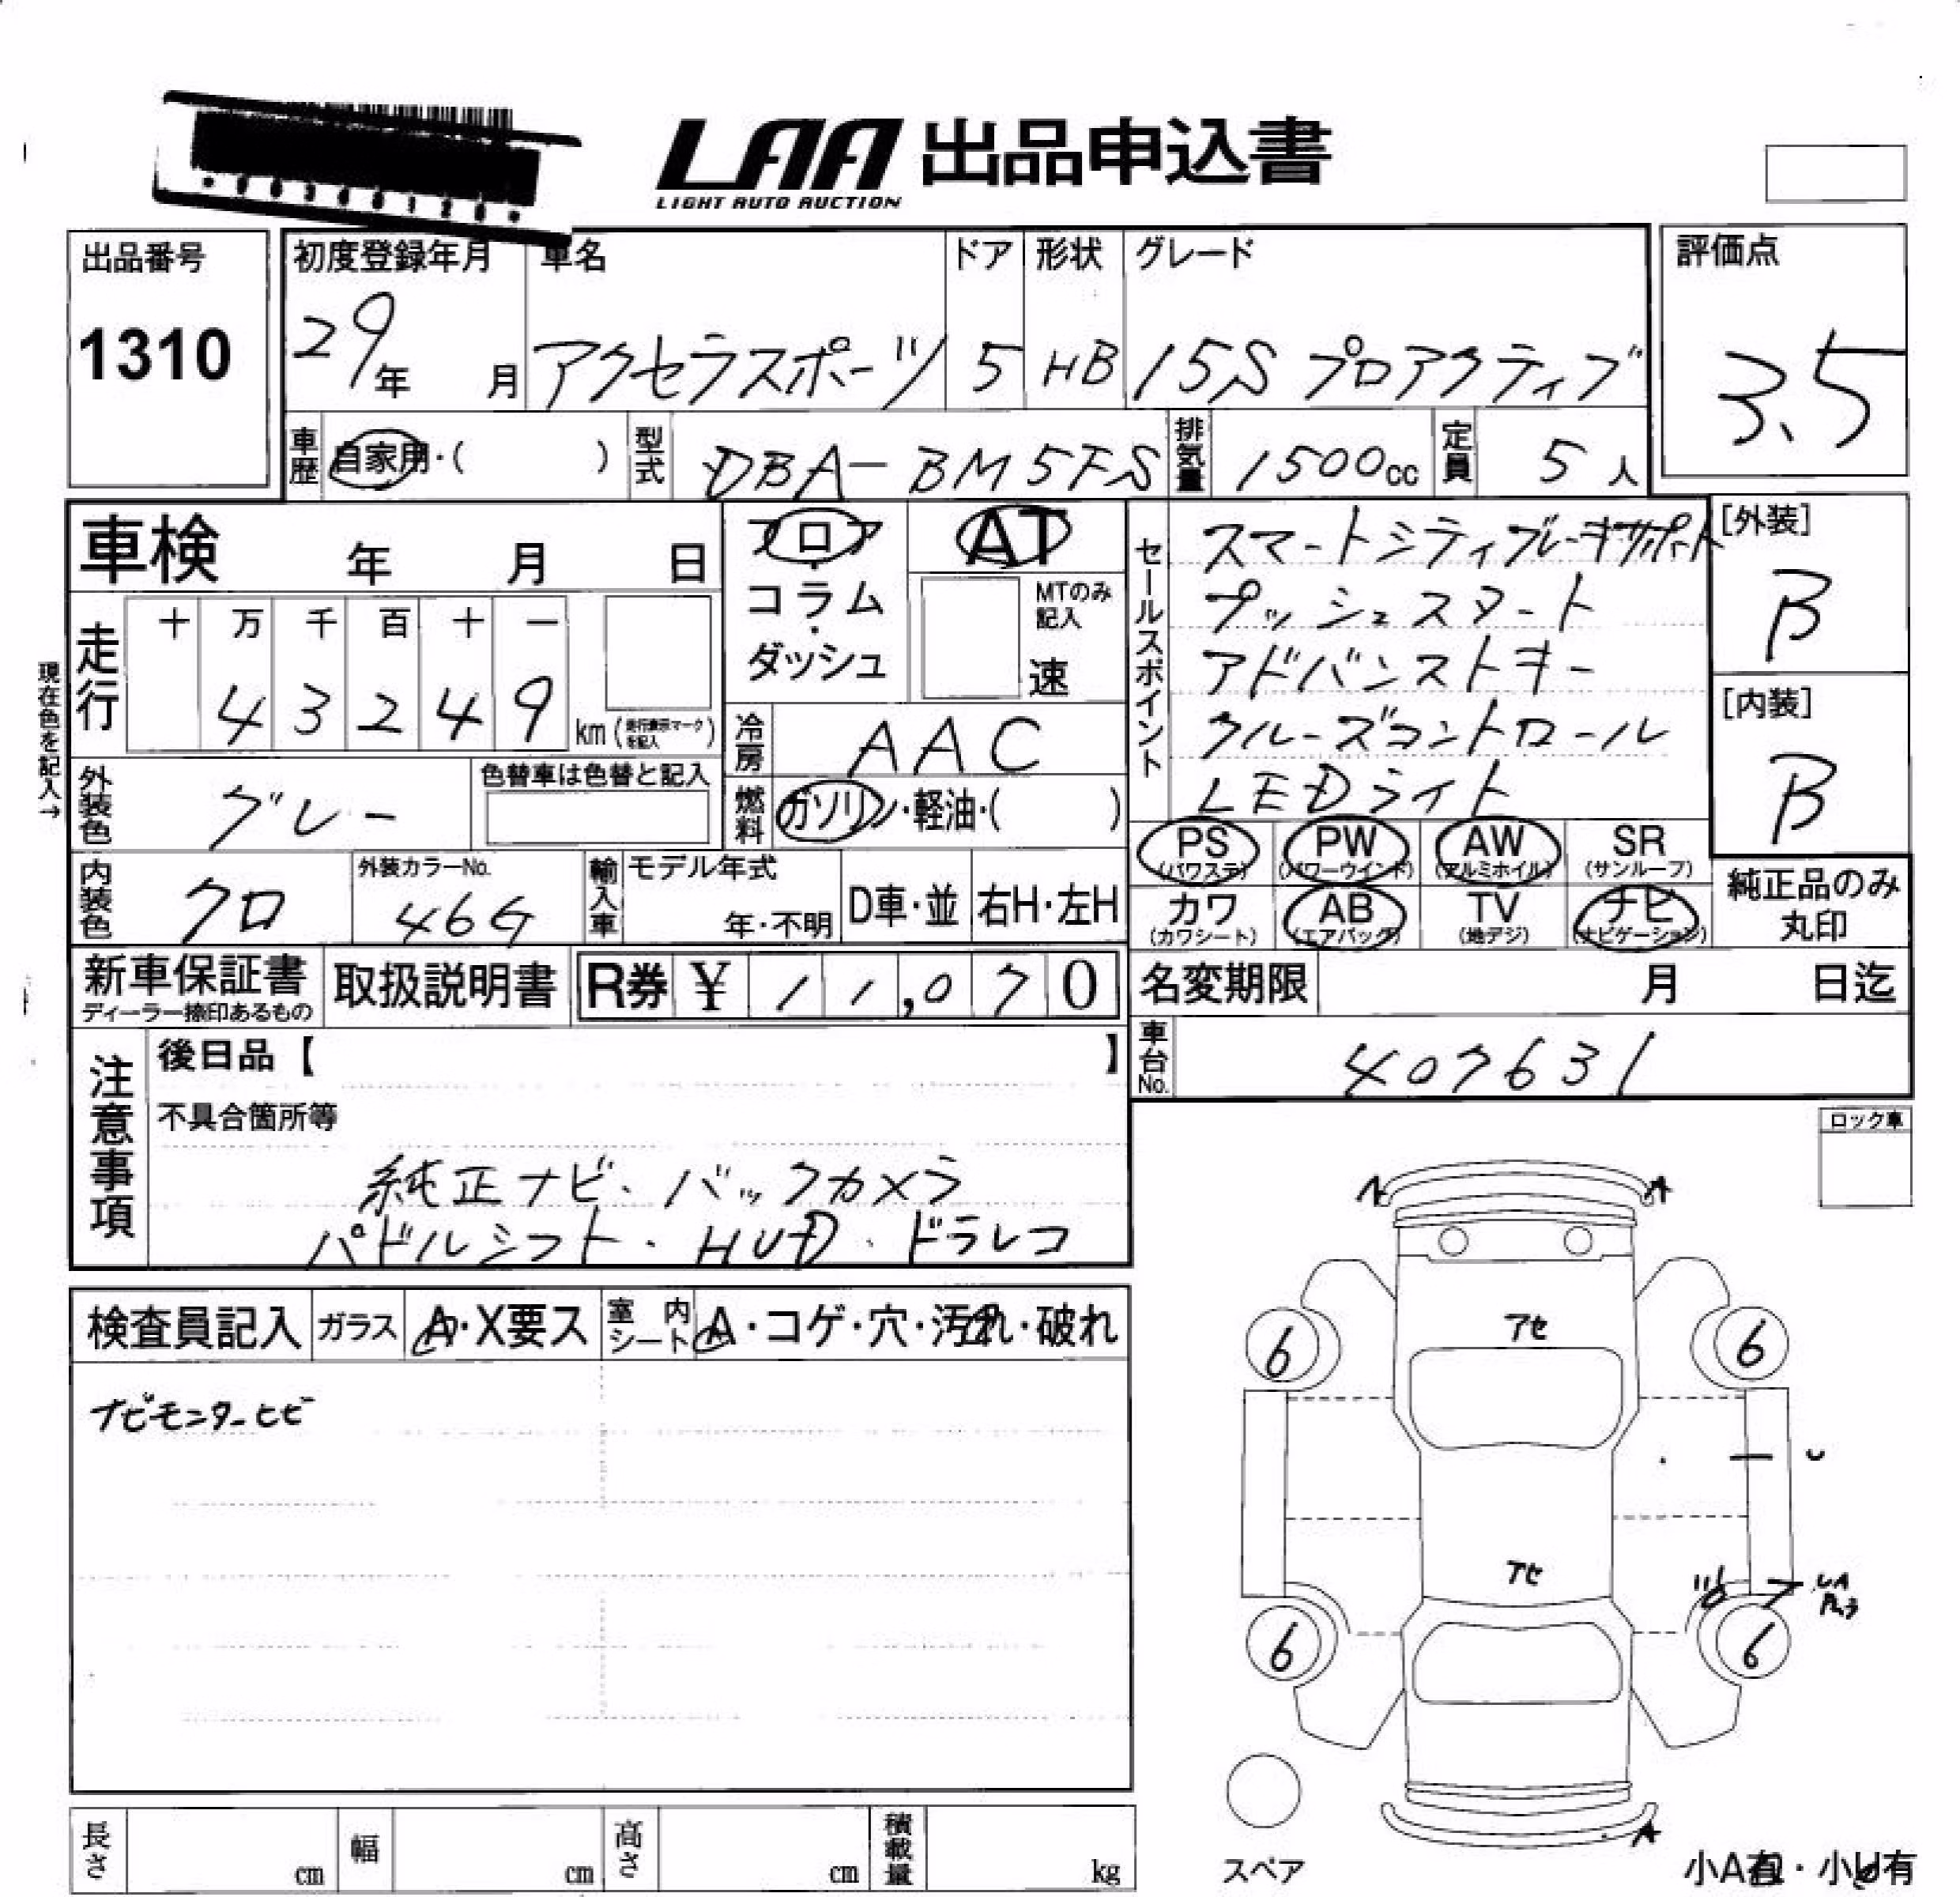 LAA 出品申込書
LIGHT AUTO AUCTION
出品番号
1310
初度登録年月
29年 月
車名
アクセラスポーツ
ドア
5
形状
HB
グレード
15S プロアクティブ
評価点
3.5
車歴 自家用・( )
型式 DBA-BM5FS
排気量 1500cc
定員 5人
車検 年 月 日
フロア・コラム・ダッシュ
AT
MTのみ記入
速
セールスポイント
スマートシティブレーキサポート
プッシュスタート
アドバンストキー
クルーズコントロール
LEDライト
[外装]
B
[内装]
B
現在色を記入→
走行
十 万 千 百 十 一
4 3 2 4 9
km (走行表示マークを記入)
冷房 AAC
外装色 グレー
色替車は色替と記入
燃料 ガソリン・軽油・( )
内装色 クロ
外装カラーNo.
46G
輸入車
モデル年式
年・不明
D車・並
右H・左H
PS (パワステ)
PW (パワーウインド)
AW (アルミホイル)
SR (サンルーフ)
カワ (カワシート)
AB (エアバック)
TV (地デジ)
ナビ (ナビゲーション)
純正品のみ丸印
新車保証書
ディーラー捺印あるもの
取扱説明書
R券 ¥ 11,070
名変期限 月 日迄
車台No. 407631
注意事項
後日品【 】
不具合箇所等
純正ナビ・バックカメラ
パドルシフト・HUD・ドラレコ
ロック車
検査員記入
ガラス A・X要ス
室内シート A・コゲ・穴・汚れ・破れ
ナビモニターヒビ
A
アセ
6
6
U
アセ
UA
6
6
A
スペア
小A有・小U有
長さ cm
幅 cm
高さ cm
積載量 kg